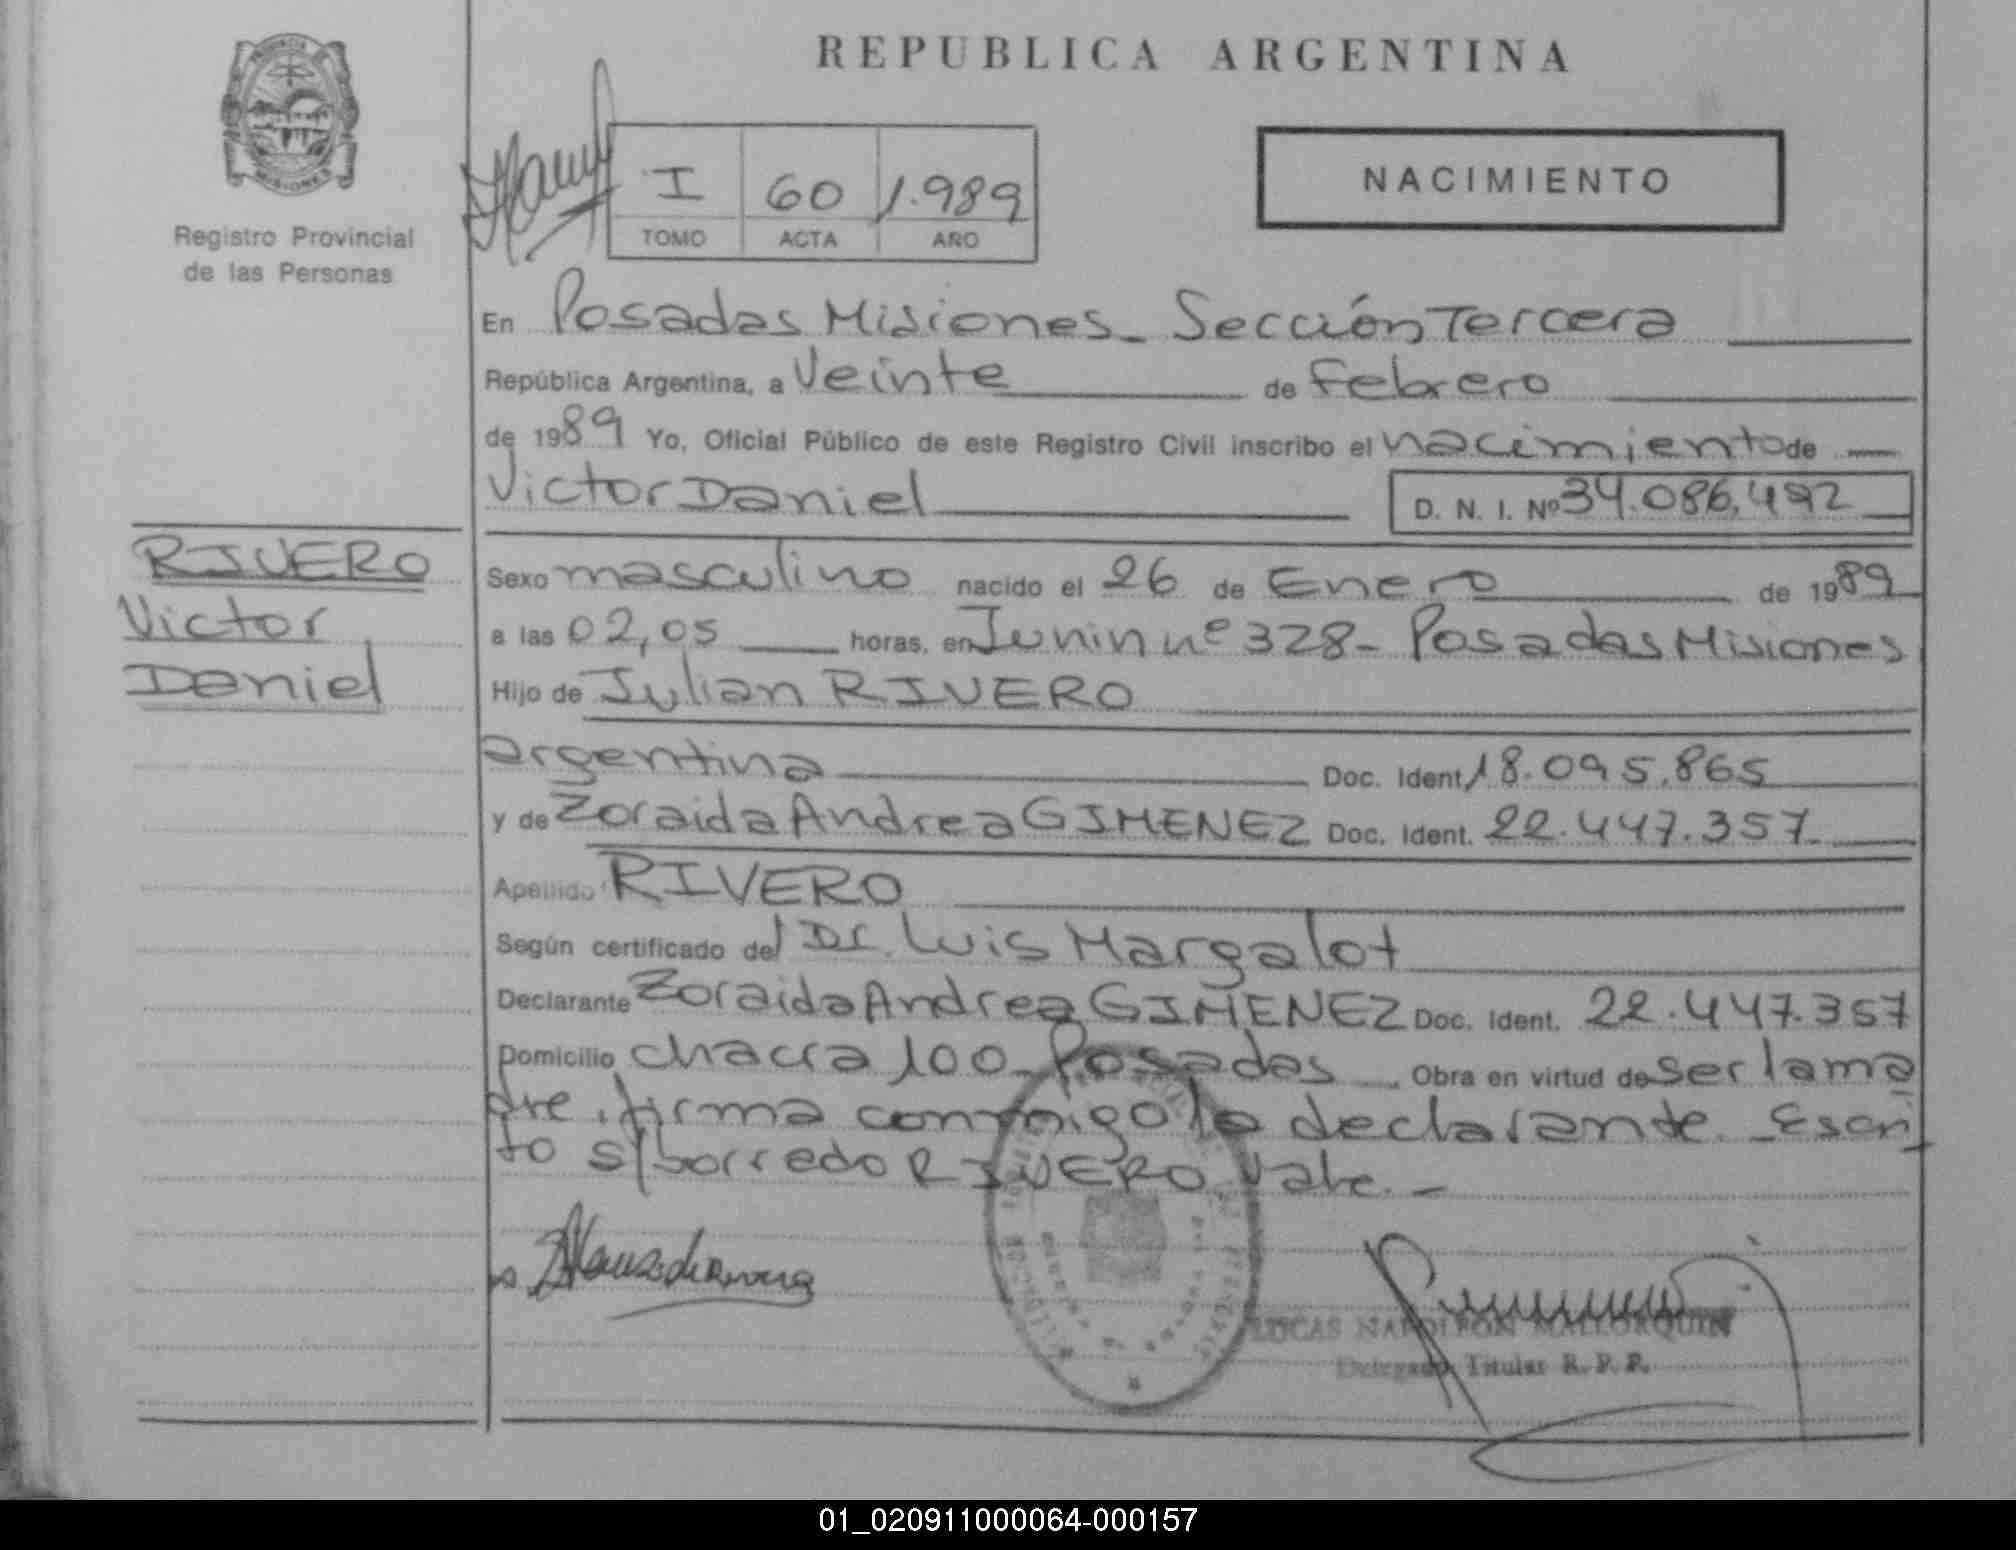 REPUBLICA ARGENTINA
NACIMIENTO
I 60 1.989
TOMO ACTA AÑO
MISIONES
Registro Provincial
de las Personas
En Posadas Misiones - Sección Tercera
República Argentina, a Veinte de Febrero
de 1989 Yo, Oficial Público de este Registro Civil inscribo el nacimiento de
Victor Daniel D. N. I. Nº 34.086.492
RIVERO
Victor
Daniel
Sexo masculino nacido el 26 de Enero de 1989
a las 02,05 horas, en Junin nº 328 - Posadas Misiones
Hijo de Julian RIVERO
argentina Doc. Ident. 18.095.865
y de Zoraida Andrea GIMENEZ Doc. Ident. 22.447.357
Apellido RIVERO
Según certificado del Dr. Luis Margalot
Declarante Zoraida Andrea GIMENEZ Doc. Ident. 22.447.357
Domicilio chacra 100 - Posadas Obra en virtud de ser la ma
dre, firma conmigo la declarante - Escri
to s/borrado RIVERO Vale. -
LUCAS NAPOLEON MALLORQUIN
Delegado Titular R. P. P.
01_020911000064-000157